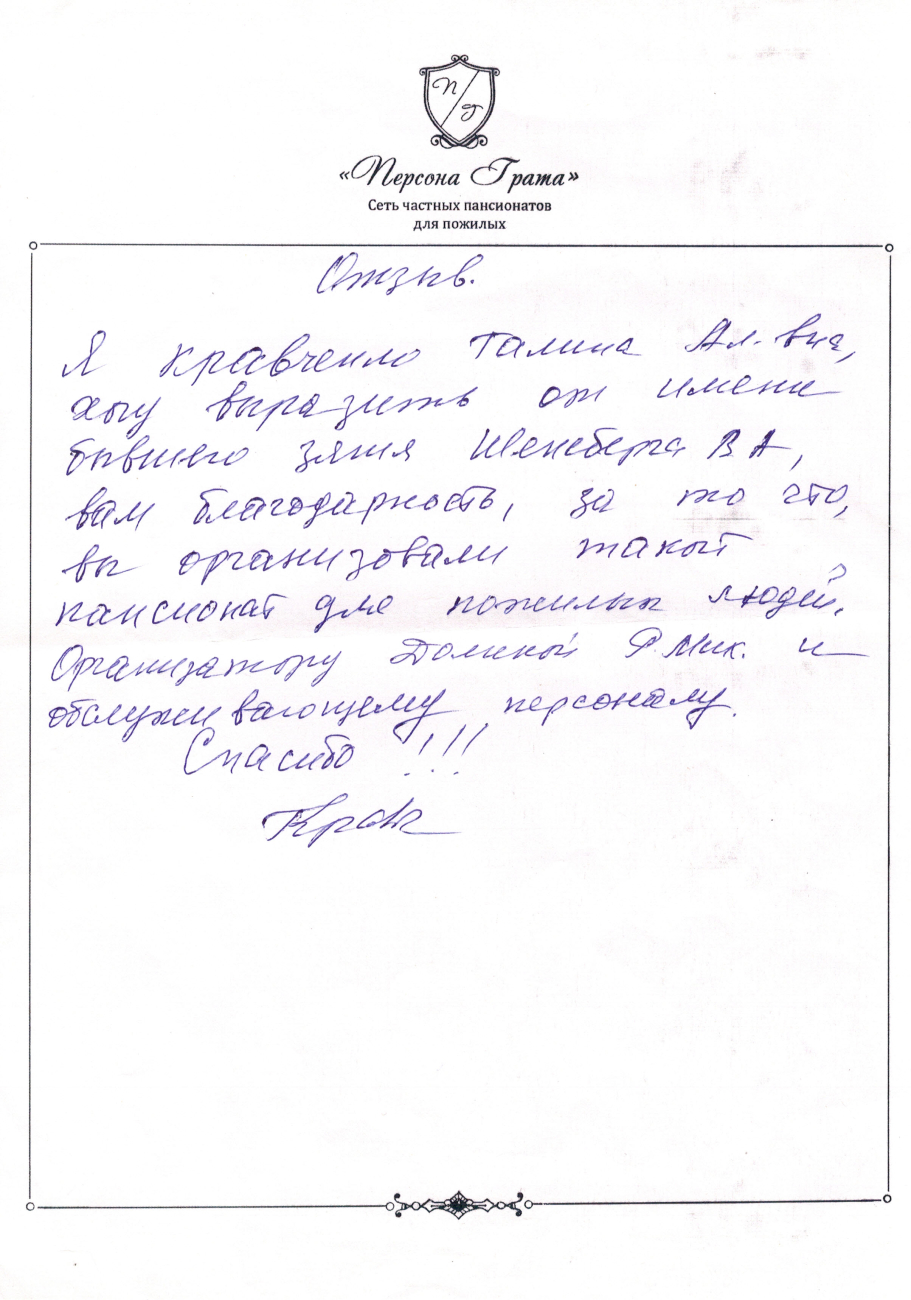 П
Г
«Персона Грата»
Сеть частных пансионатов
для пожилых
Отзыв.
Я Кравченко Галина Ал-вна,
хочу выразить от имени
бывшего зятя Шенберга В А,
вам благодарность, за то что,
вы организовали такой
пансионат для пожилых людей.
Организатору Р. Мих. и
обслуживающему персоналу.
Спасибо !!!